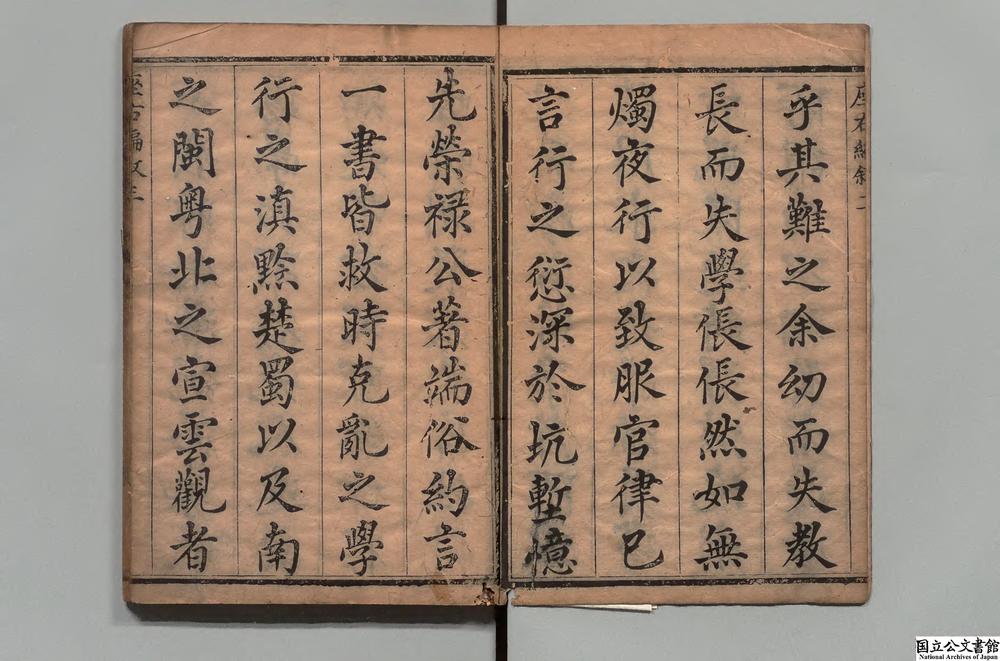 乎其難之余幼而失教
長而失學倀倀然如無
燭夜行以致服官律已
言行之愆深於坑塹憶
先榮禄公著端俗約言
一書皆救時克亂之學
行之滇黔楚蜀以及南
之閩粵北之宣雲觀者
国立公文書館
National Archives of Japan